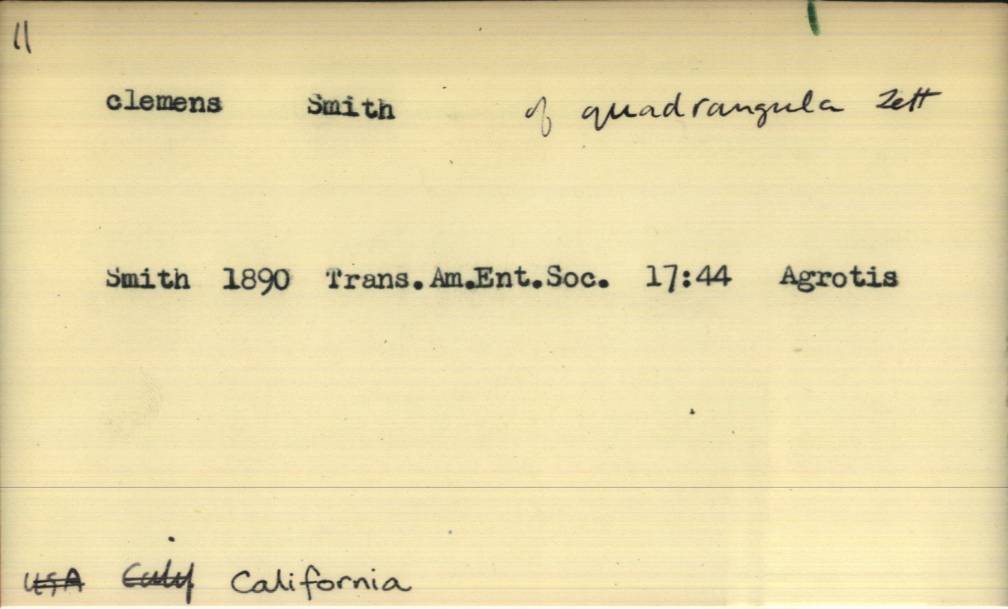 11
clemens Smith of quadrangula Zett
Smith 1890 Trans.Am.Ent.Soc. 17:44 Agrotis
USA Calif California